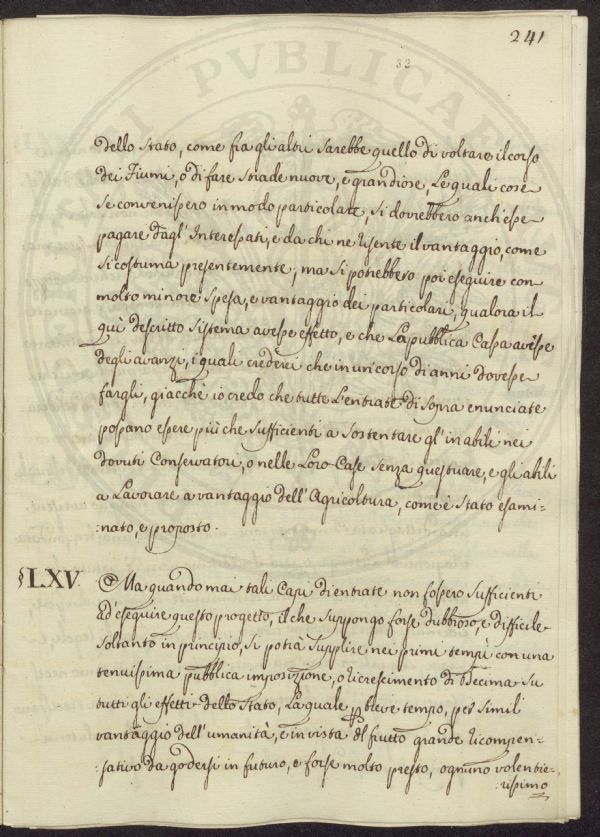 241
33
dello Stato, come fra gli altri sarebbe quello di voltare il corso
dei Fiumi, o di fare strade nuove, e grandiose, Le quali cose
se convenissero in modo particolare, si dovrebbero anch'esse
pagare dagl'Interessati, e da chi ne risente il vantaggio, come
si costuma presentemente, ma si potrebbero poi eseguire con
molto minore spesa, e vantaggio dei particolari, qualora il
quì descritto sistema avesse effetto, e che La pubblica Cassa avesse
degli avanzi, i quali crederei che in un'corso di anni dovesse
fargli, giacchè io credo che tutte L'entrate di Sopra enunciate
possano essere più che sufficienti a sostentare gl'inabili nei
dovuti Conservatori, o nelle Loro Case senza questuare, e gli abili
a Lavorare a vantaggio dell'Agricoltura, come è stato esami-
:nato, e proposto.
§LXV. Ma quando mai tali Capi di entrate non fossero sufficienti
ad'eseguire questo progetto, il che suppongo forse dubbioso, e difficile
soltanto in principio, si potrà supplire nei primi tempi con una
tenuissima pubblica imposizione, o ricrescimento di Decima su
tutti gli effetti dello Stato, La quale p breve tempo, per simil
vantaggio dell'umanità, e in vista del frutto grande ricompen-
:sativo da godersi in futuro, e forse molto presto, ognuno volentie-
:rissimo
PVBLICAE